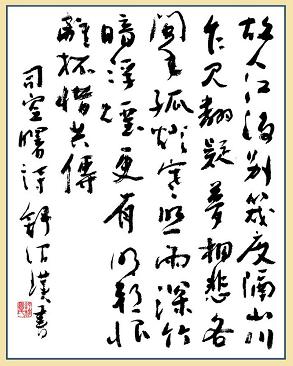 故人江海别幾度隔山川
乍见翻疑夢相悲各
问年孤燈寒照雨深竹
暗浮煙更有明朝恨
離杯惜共傳
司空曙诗 舒漢書